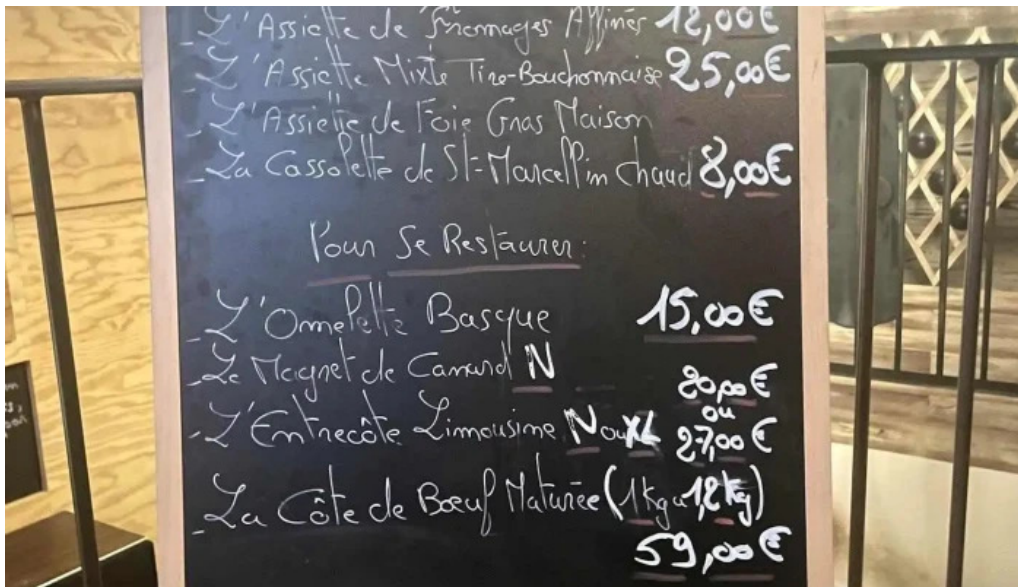 - L'Assiette de Fromages Affinés 12,00€
- L'Assiette Mixte Tire-Bouchonnaise 25,00€
- L'Assiette de Foie Gras Maison
- La Cassolette de St-Marcellin Chaud 8,00€
Pour Se Restaurer:
- L'Omelette Basque 15,00€
- Le Magret de Canard N
20,00€
ou
- L'Entrecôte Limousine N ou XL 27,00€
- La Côte de Bœuf Maturée (1kg à 1,2kg)
59,00€